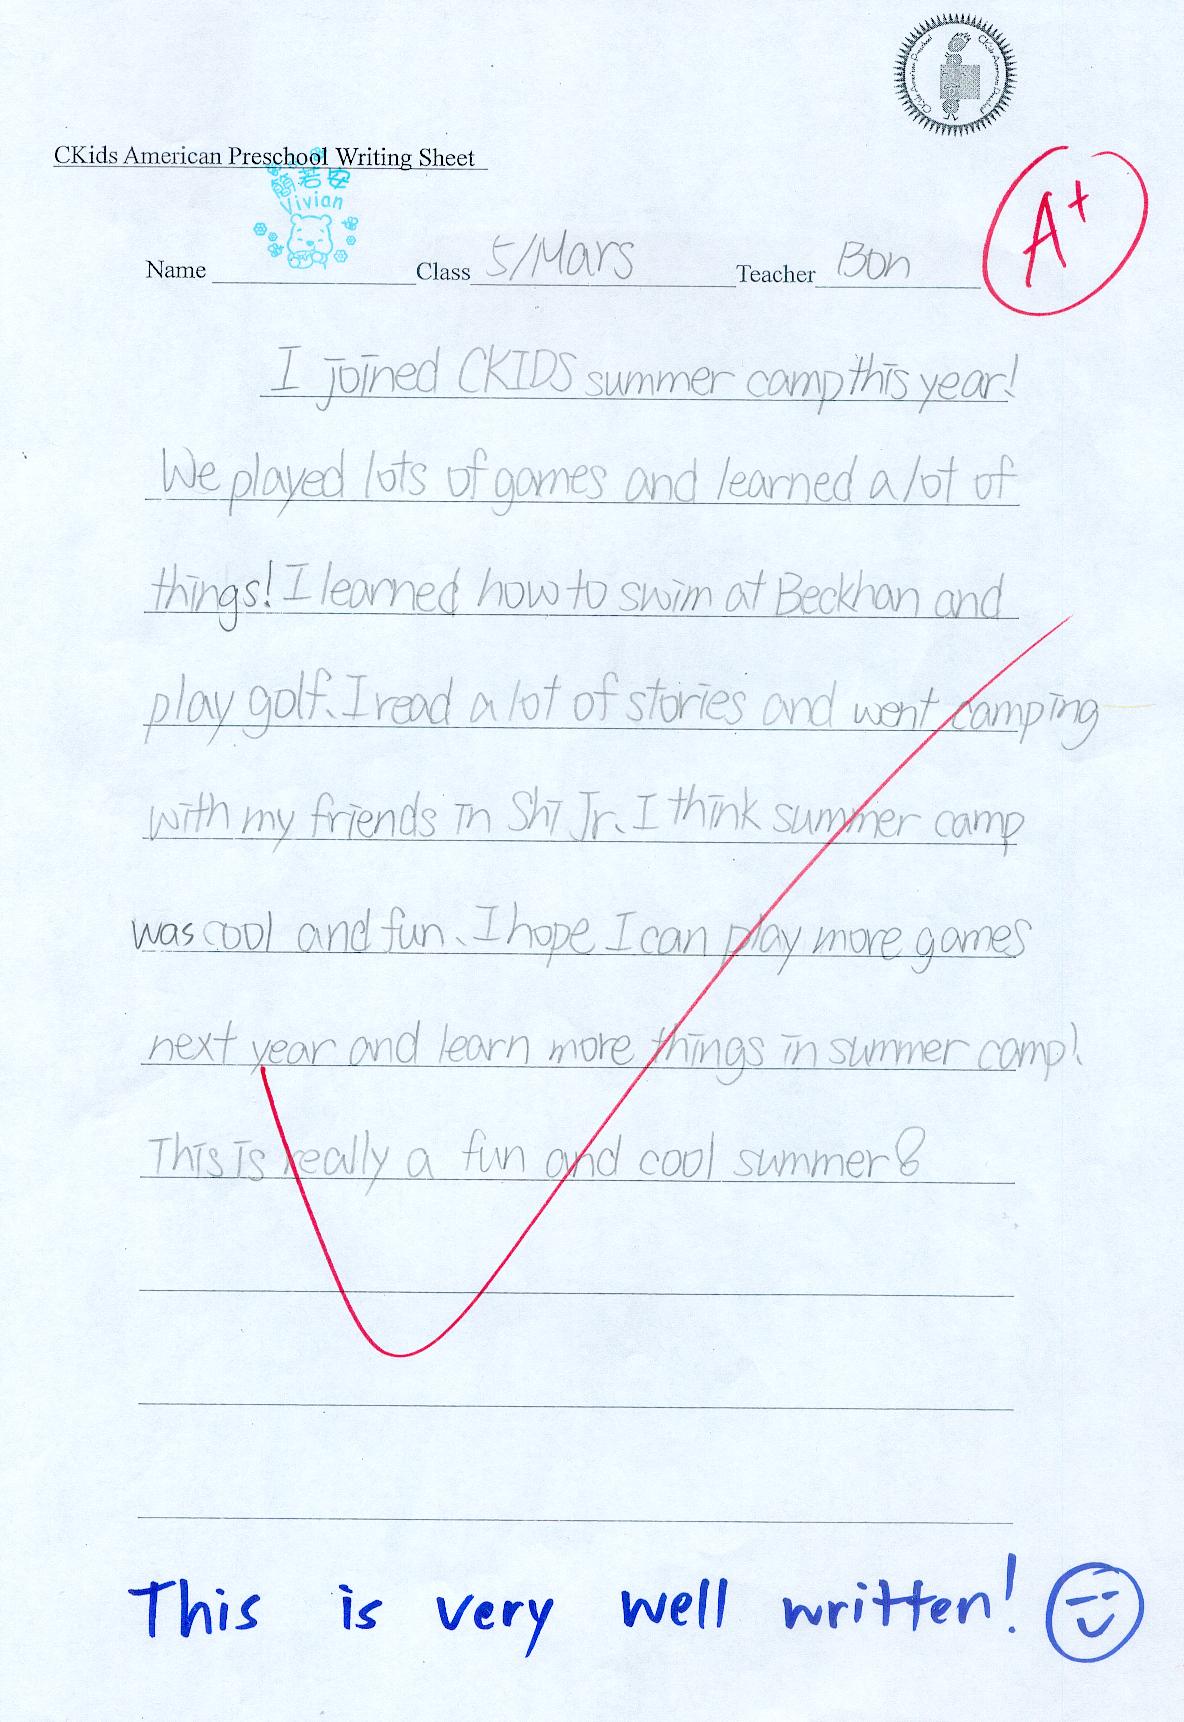 CKids American Preschool CKids American Preschool
CKids American Preschool Writing Sheet
簡若安
Vivian
A+
Name Class 5/Mars Teacher Bon
I joined CKIDS summer camp this year!
We played lots of games and learned a lot of
things! I learned how to swim at Beckhan and
play golf. I read a lot of stories and went camping
with my friends in Shi Jr. I think summer camp
was cool and fun. I hope I can play more games
next year and learn more things in summer camp!
This is really a fun and cool summer
This is very well written!